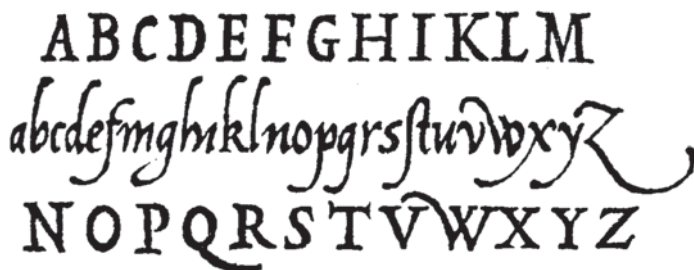 A B C D E F G H I K L M
abcdefmghiklnopqrsſtuvwxyz
N O P Q R S T V W X Y Z